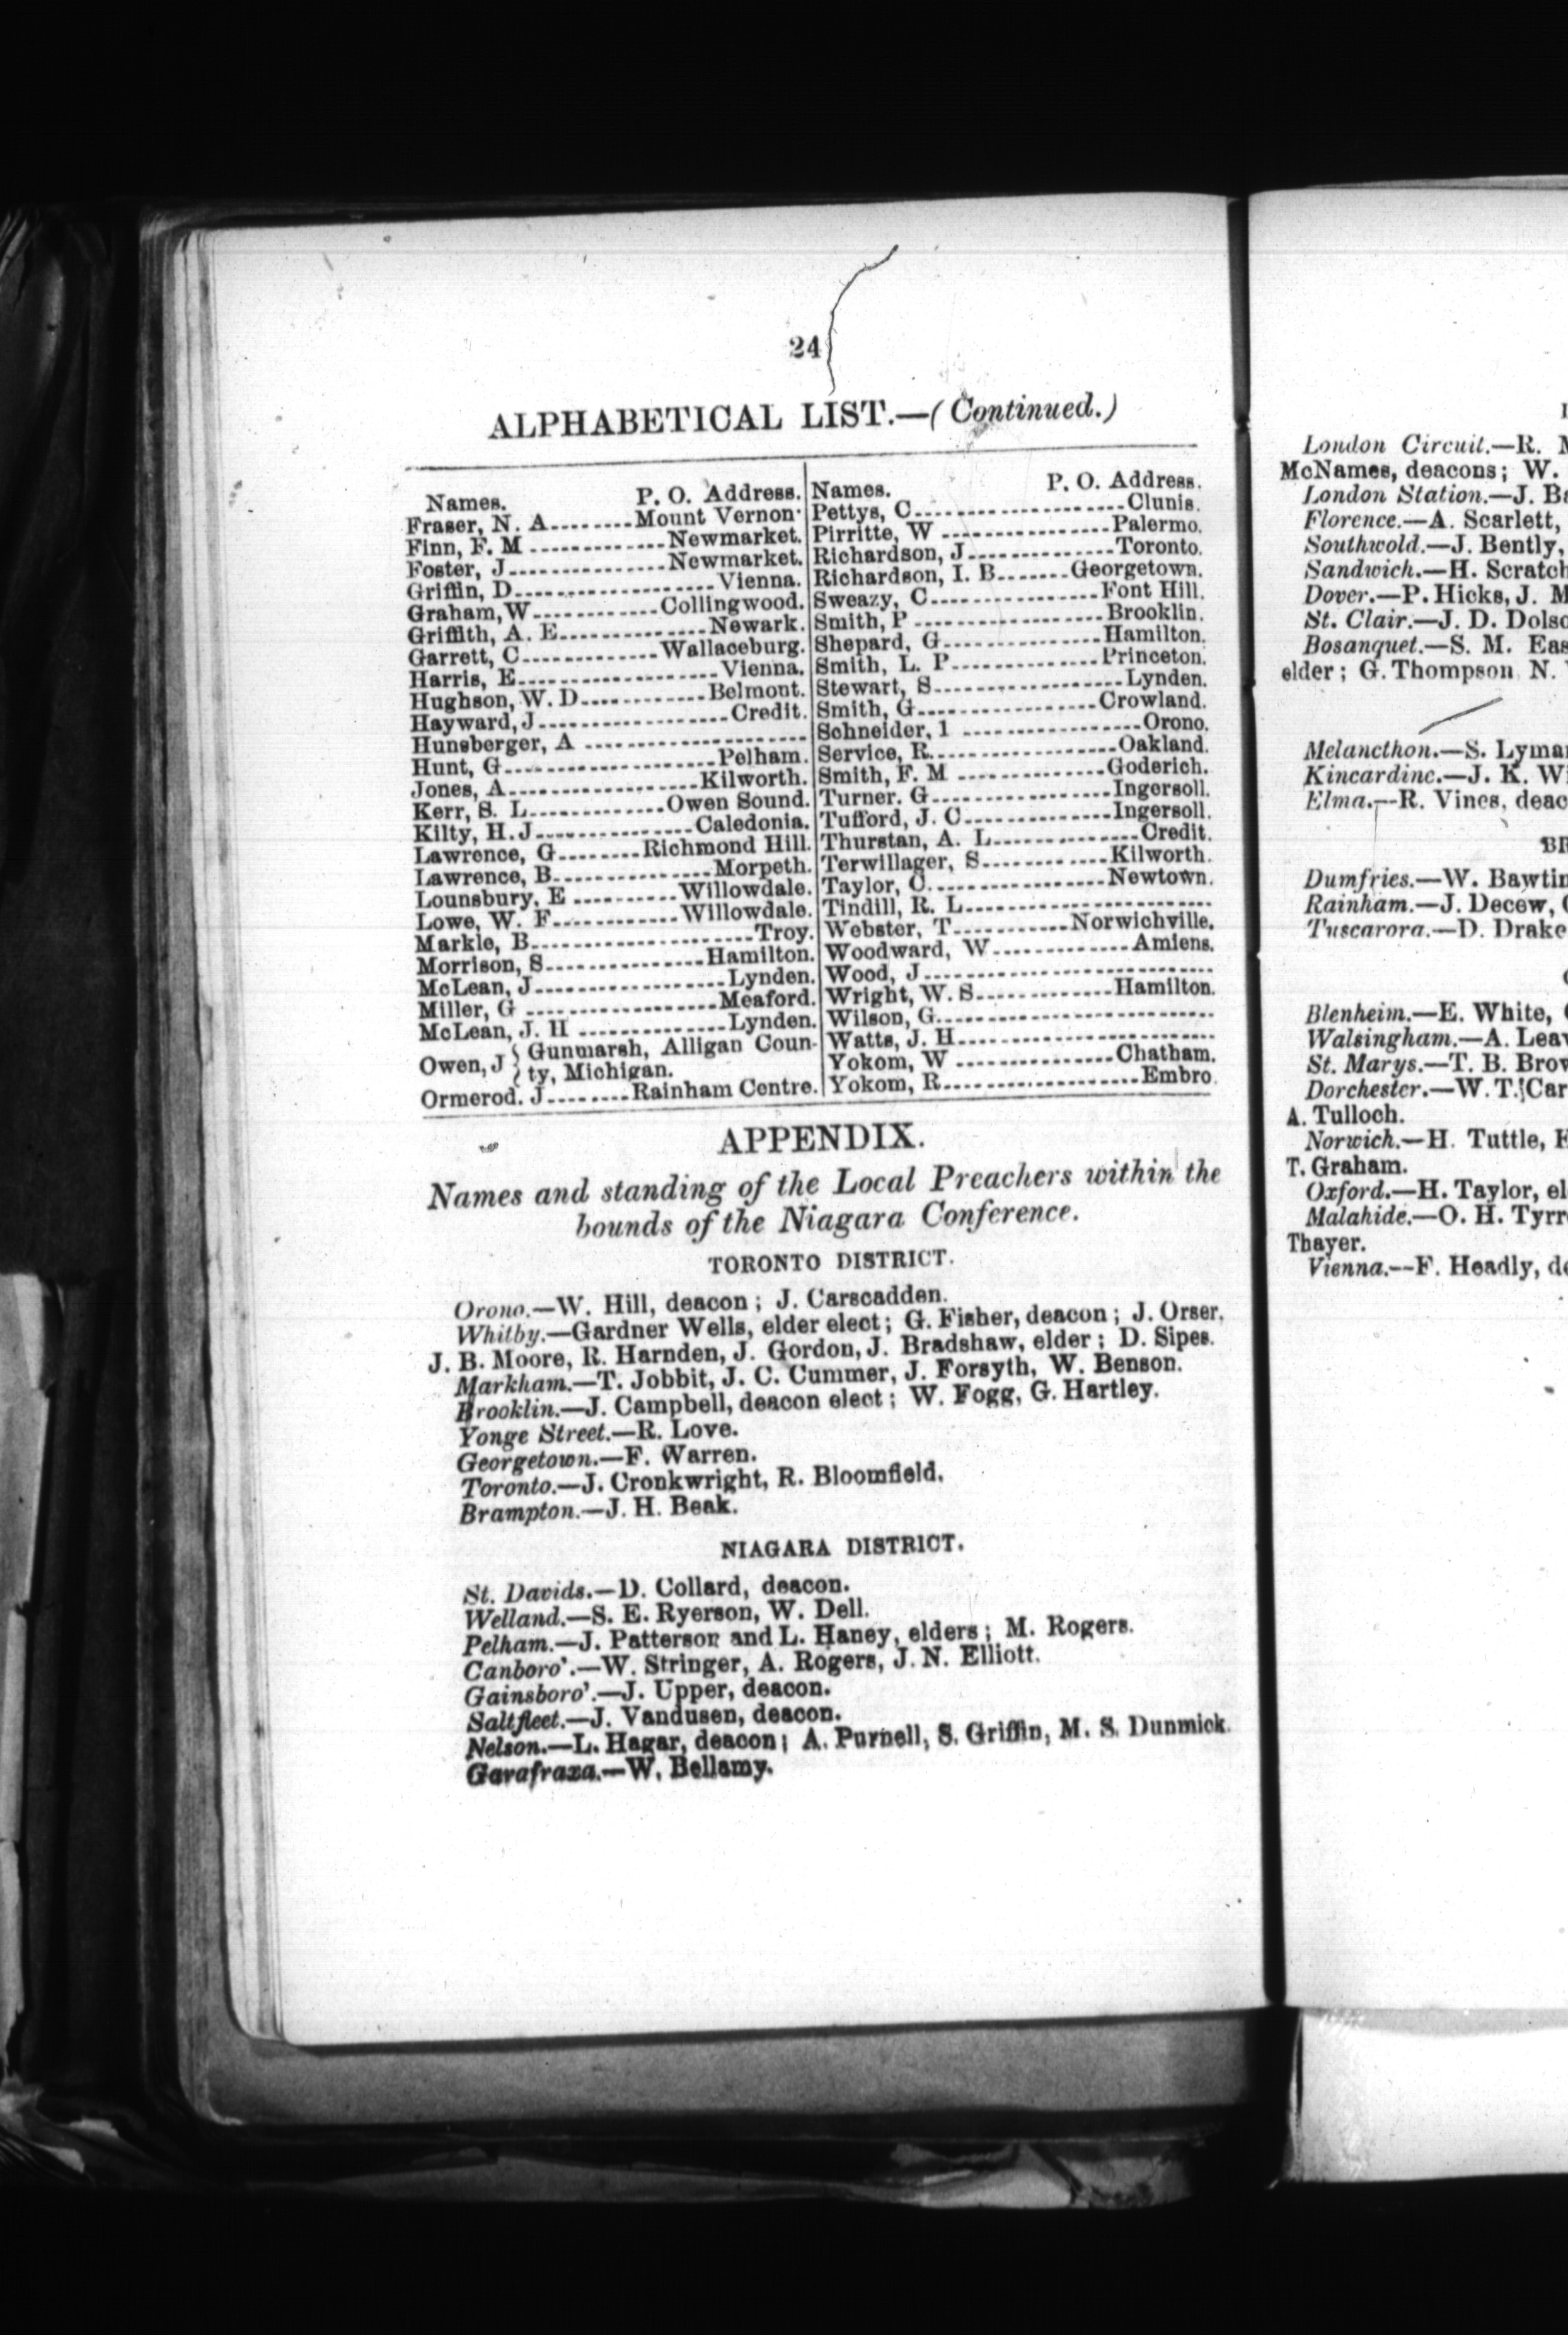 24
ALPHABETICAL LIST.—(Continued.)
Names. P. O. Address.
Fraser, N. A--------Mount Vernon
Finn, F. M -------------Newmarket.
Foster, J---------------Newmarket.
Griffin, D-------------------Vienna.
Graham, W------------Collingwood.
Griffith, A. E--------------Newark.
Garrett, C-------------Wallaceburg.
Harris, E-------------------Vienna.
Hughson, W. D------------Belmont.
Hayward, J------------------Credit.
Hunsberger, A ----------------------
Hunt, G--------------------Pelham.
Jones, A------------------Kilworth.
Kerr, S. L-------------Owen Sound.
Kilty, H. J---------------Caledonia.
Lawrence, G--------Richmond Hill.
Lawrence, B---------------Morpeth.
Lounsbury, E ----------Willowdale.
Lowe, W. F------------Willowdale.
Markle, B---------------------Troy.
Morrison, S---------------Hamilton.
McLean, J------------------Lynden.
Miller, G ------------------Meaford.
McLean, J. H --------------Lynden.
Owen, J { Gunmarsh, Alligan Coun-
ty, Michigan.
Ormerod. J--------Rainham Centre.
Names. P. O. Address.
Pettys, C--------------------Clunis.
Pirritte, W ----------------Palermo.
Richardson, J--------------Toronto.
Richardson, I. B-------Georgetown.
Sweazy, C----------------Font Hill.
Smith, P ------------------Brooklin.
Shepard, G---------------Hamilton.
Smith, L. P--------------Princeton.
Stewart, S------------------Lynden.
Smith, G-----------------Crowland.
Schneider, 1 -----------------Orono.
Service, R------------------Oakland.
Smith, F. M --------------Goderich.
Turner. G-----------------Ingersoll.
Tufford, J. C--------------Ingersoll.
Thurstan, A. L--------------Credit.
Terwillager, S------------Kilworth.
Taylor, C-----------------Newtown.
Tindill, R. L------------------------
Webster, T-----------Norwichville.
Woodward, W-------------Amiens.
Wood, J----------------------------
Wright, W. S-------------Hamilton.
Wilson, G---------------------------
Watts, J. H-------------------------
Yokom, W ---------------Chatham.
Yokom, R-------------------Embro.
APPENDIX.
Names and standing of the Local Preachers within the
bounds of the Niagara Conference.
TORONTO DISTRICT.
Orono.—W. Hill, deacon; J. Carscadden.
Whitby.—Gardner Wells, elder elect; G. Fisher, deacon; J. Orser,
J. B. Moore, R. Harnden, J. Gordon, J. Bradshaw, elder; D. Sipes.
Markham.—T. Jobbit, J. C. Cummer, J. Forsyth, W. Benson.
Brooklin.—J. Campbell, deacon elect; W. Fogg, G. Hartley.
Yonge Street.—R. Love.
Georgetown.—F. Warren.
Toronto.—J. Cronkwright, R. Bloomfield.
Brampton.—J. H. Beak.
NIAGARA DISTRICT.
St. Davids.—D. Collard, deacon.
Welland.—S. E. Ryerson, W. Dell.
Pelham.—J. Patterson and L. Haney, elders; M. Rogers.
Canboro'.—W. Stringer, A. Rogers, J. N. Elliott.
Gainsboro'.—J. Upper, deacon.
Saltfleet.—J. Vandusen, deacon.
Nelson.—L. Hagar, deacon; A. Purnell, S. Griffin, M. S. Dunmick.
Garafraxa.—W. Bellamy.
London Circuit.—R.
McNames, deacons; W.
London Station.—J.
Florence.—A. Scarlett,
Southwold.—J. Bently,
Sandwich.—H. Scratch
Dover.—P. Hicks, J. M
St. Clair.—J. D.
Bosanquet.—S. M.
elder; G. Thompson N.
Melancthon.—S.
Kincardine.—J. K.
Elma.—R. Vines,
Dumfries.—W.
Rainham.—J. Decew,
Tuscarora.—D. Drake
Blenheim.—E. White,
Walsingham.—A.
St. Marys.—T. B.
Dorchester.—W. T.
A. Tulloch.
Norwich.—H. Tuttle,
T. Graham.
Oxford.—H. Taylor,
Malahide.—O. H.
Thayer.
Vienna.—F. Headly,